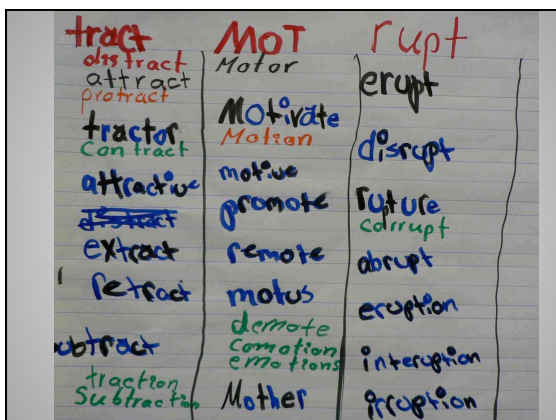 tract
distract
attract
protract
tractor
contract
attractive
distract
extract
retract
subtract
traction
Subtraction
MOT
Motor
Motivate
Motion
motive
promote
remote
motus
demote
comotion
emotions
Mother
rupt
erupt
disrupt
rupture
corrupt
abrupt
eruption
interuption
irruption